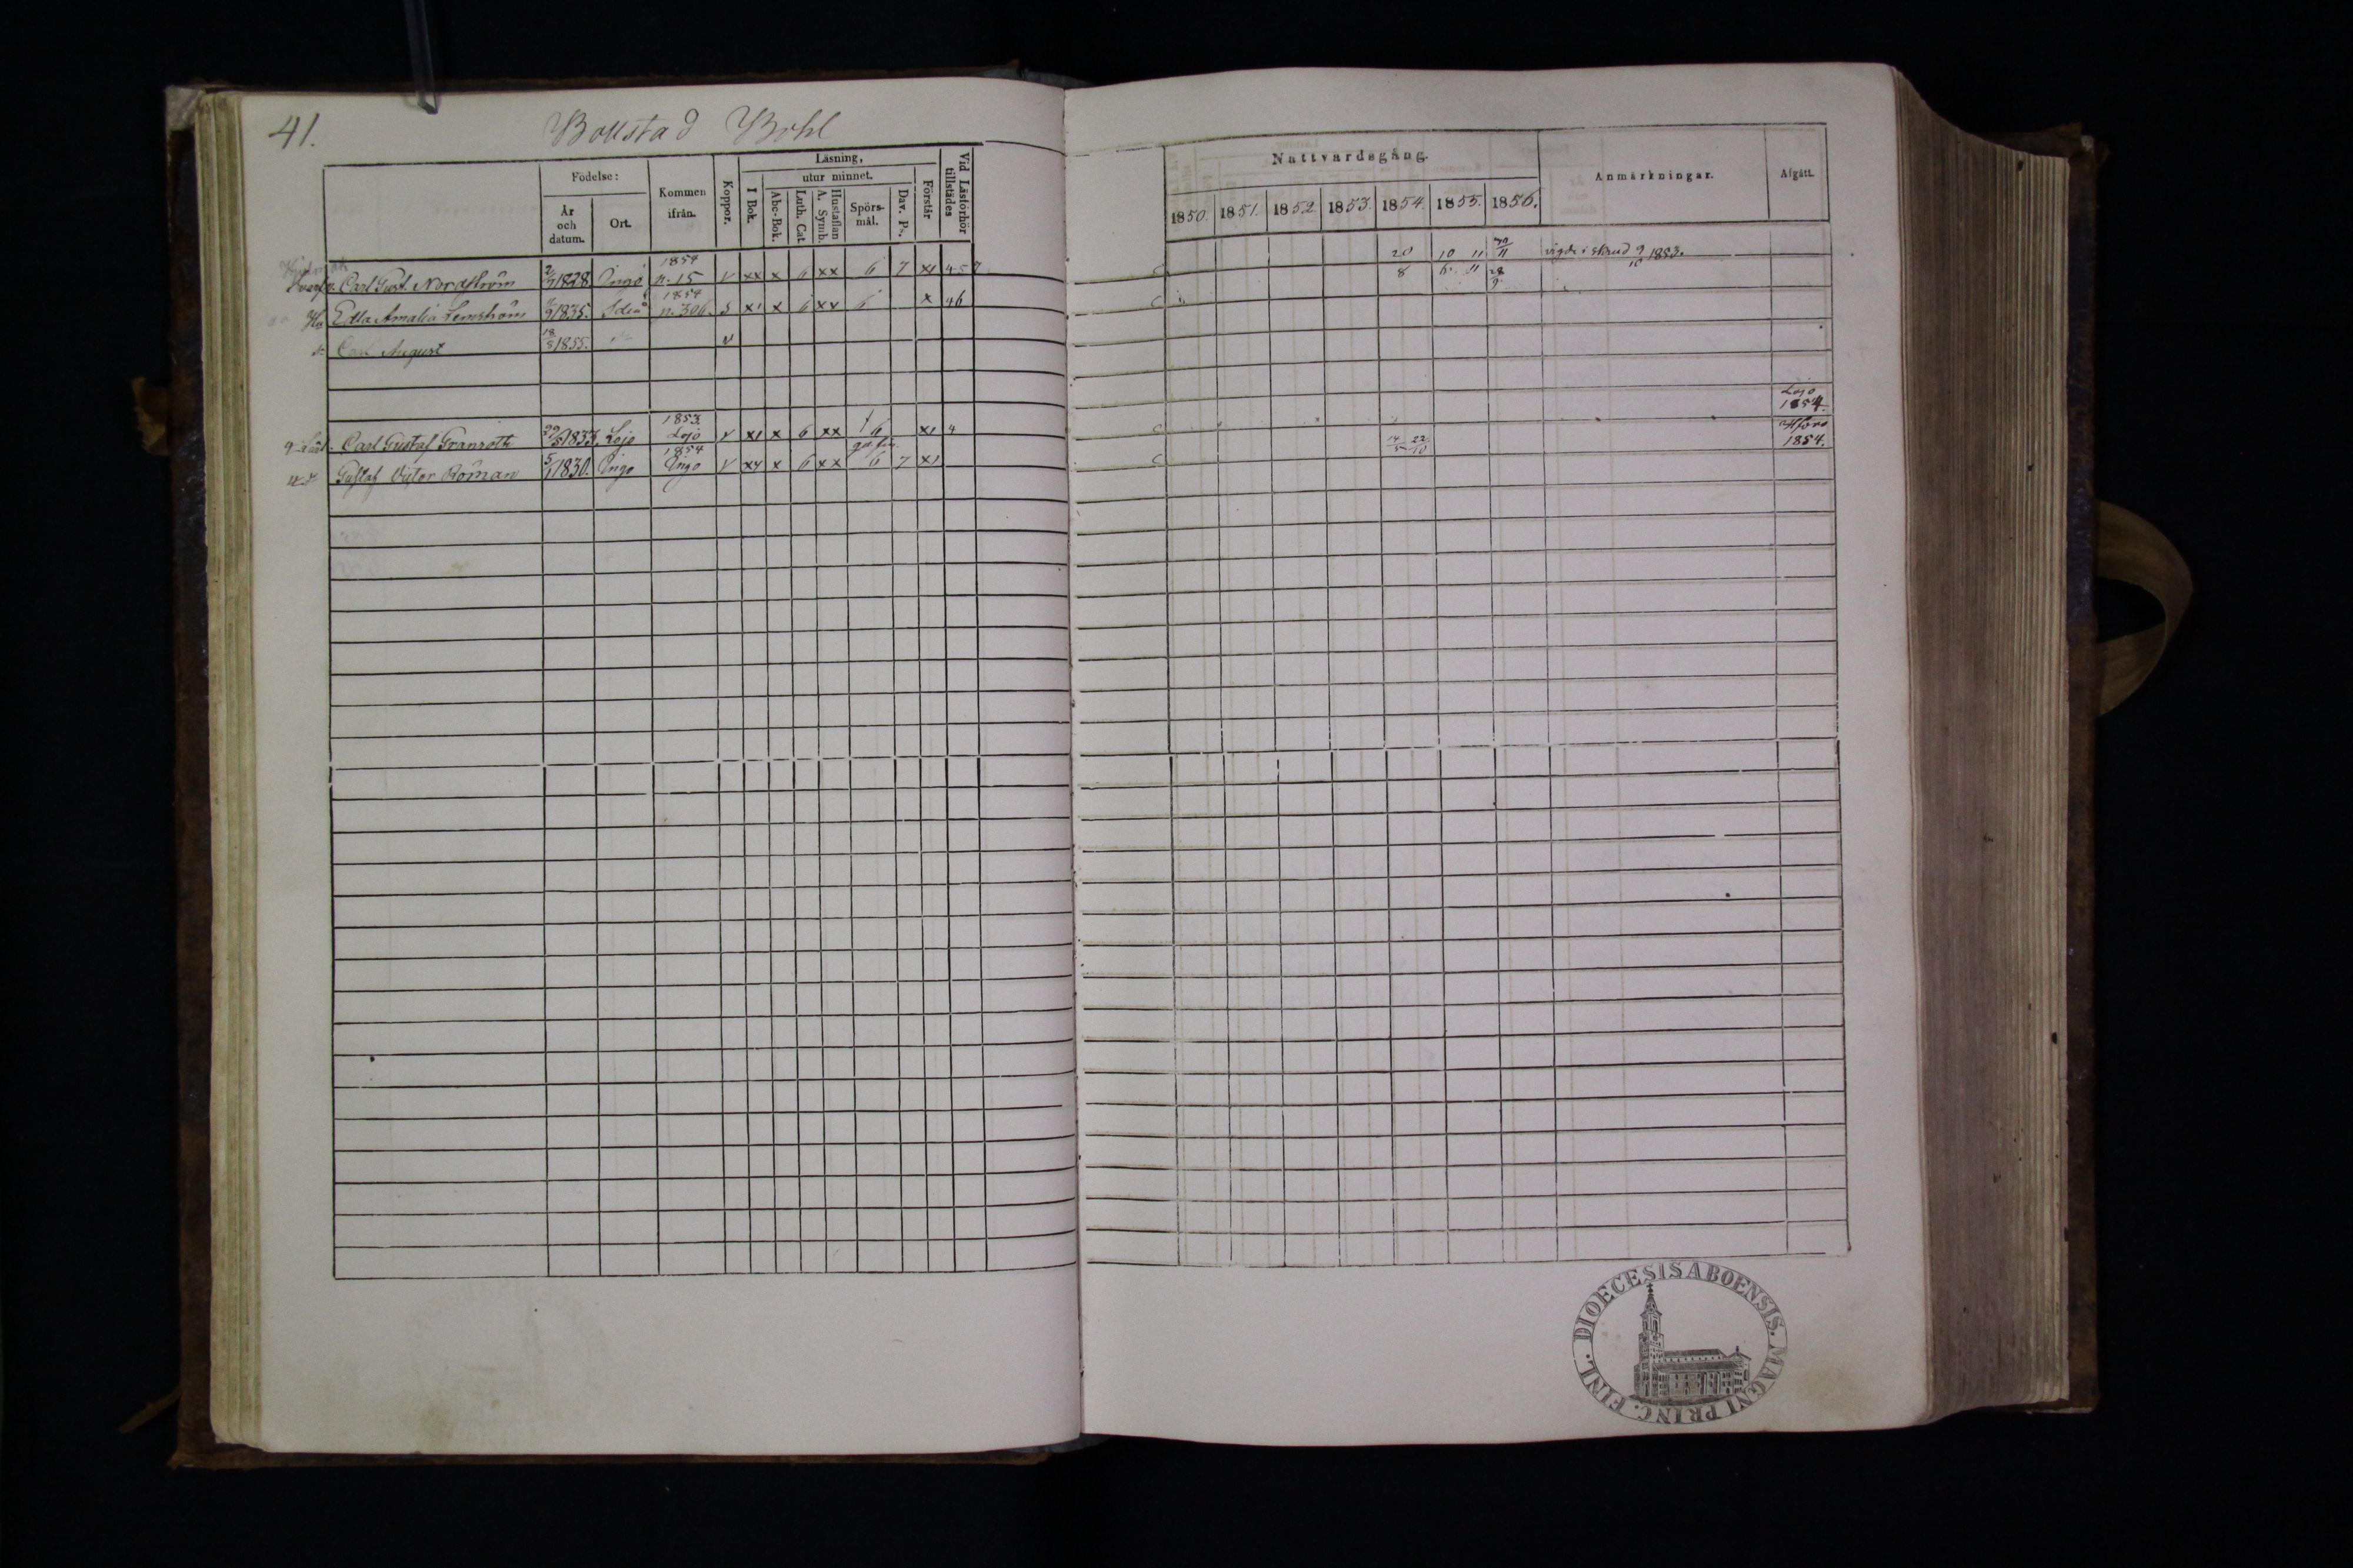 41.
Bollstad Bohl
Födelse:
År och datum.
Ort.
Kommen ifrån.
Koppor.
Läsning,
I Bok.
utur minnet.
Abc-Bok.
Luth. Cat.
Hustaflan A. Symb.
Spörsmål.
Dav. Ps.
Förstår
Vid Läsförhör tillstädes
Nattvardsgång.
1850. 1851. 1852 1853. 1854. 1855. 1856.
Anmärkningar.
Afgått.
Carl Gust. Nordström 2/7 1828. Ingå 1854 n. 15 v xx x 6 xx 6 7 x1 4 5 7 20 10 11 vigde i stånd 9/10 1853.
Hu Edla Amalia Lemström 1835. 1854 n. 306. s x1 x 6 xx 6 x 46 8
s. Carl August 18/5 1855. v
Carl Gustaf Granroth 1833. Lojo 1853. Lojo v x1 x 6 xx 6 x1 4 Lojo 1854.
Gustaf Victor Roman 5/1 1830. Ingo 1854 Ingo v xx x 6 xx 6 7 x1 14/5 22/10 Hfors 1854.
DIOECESIS ABOENSIS. MAGNI PRINC. FINL.